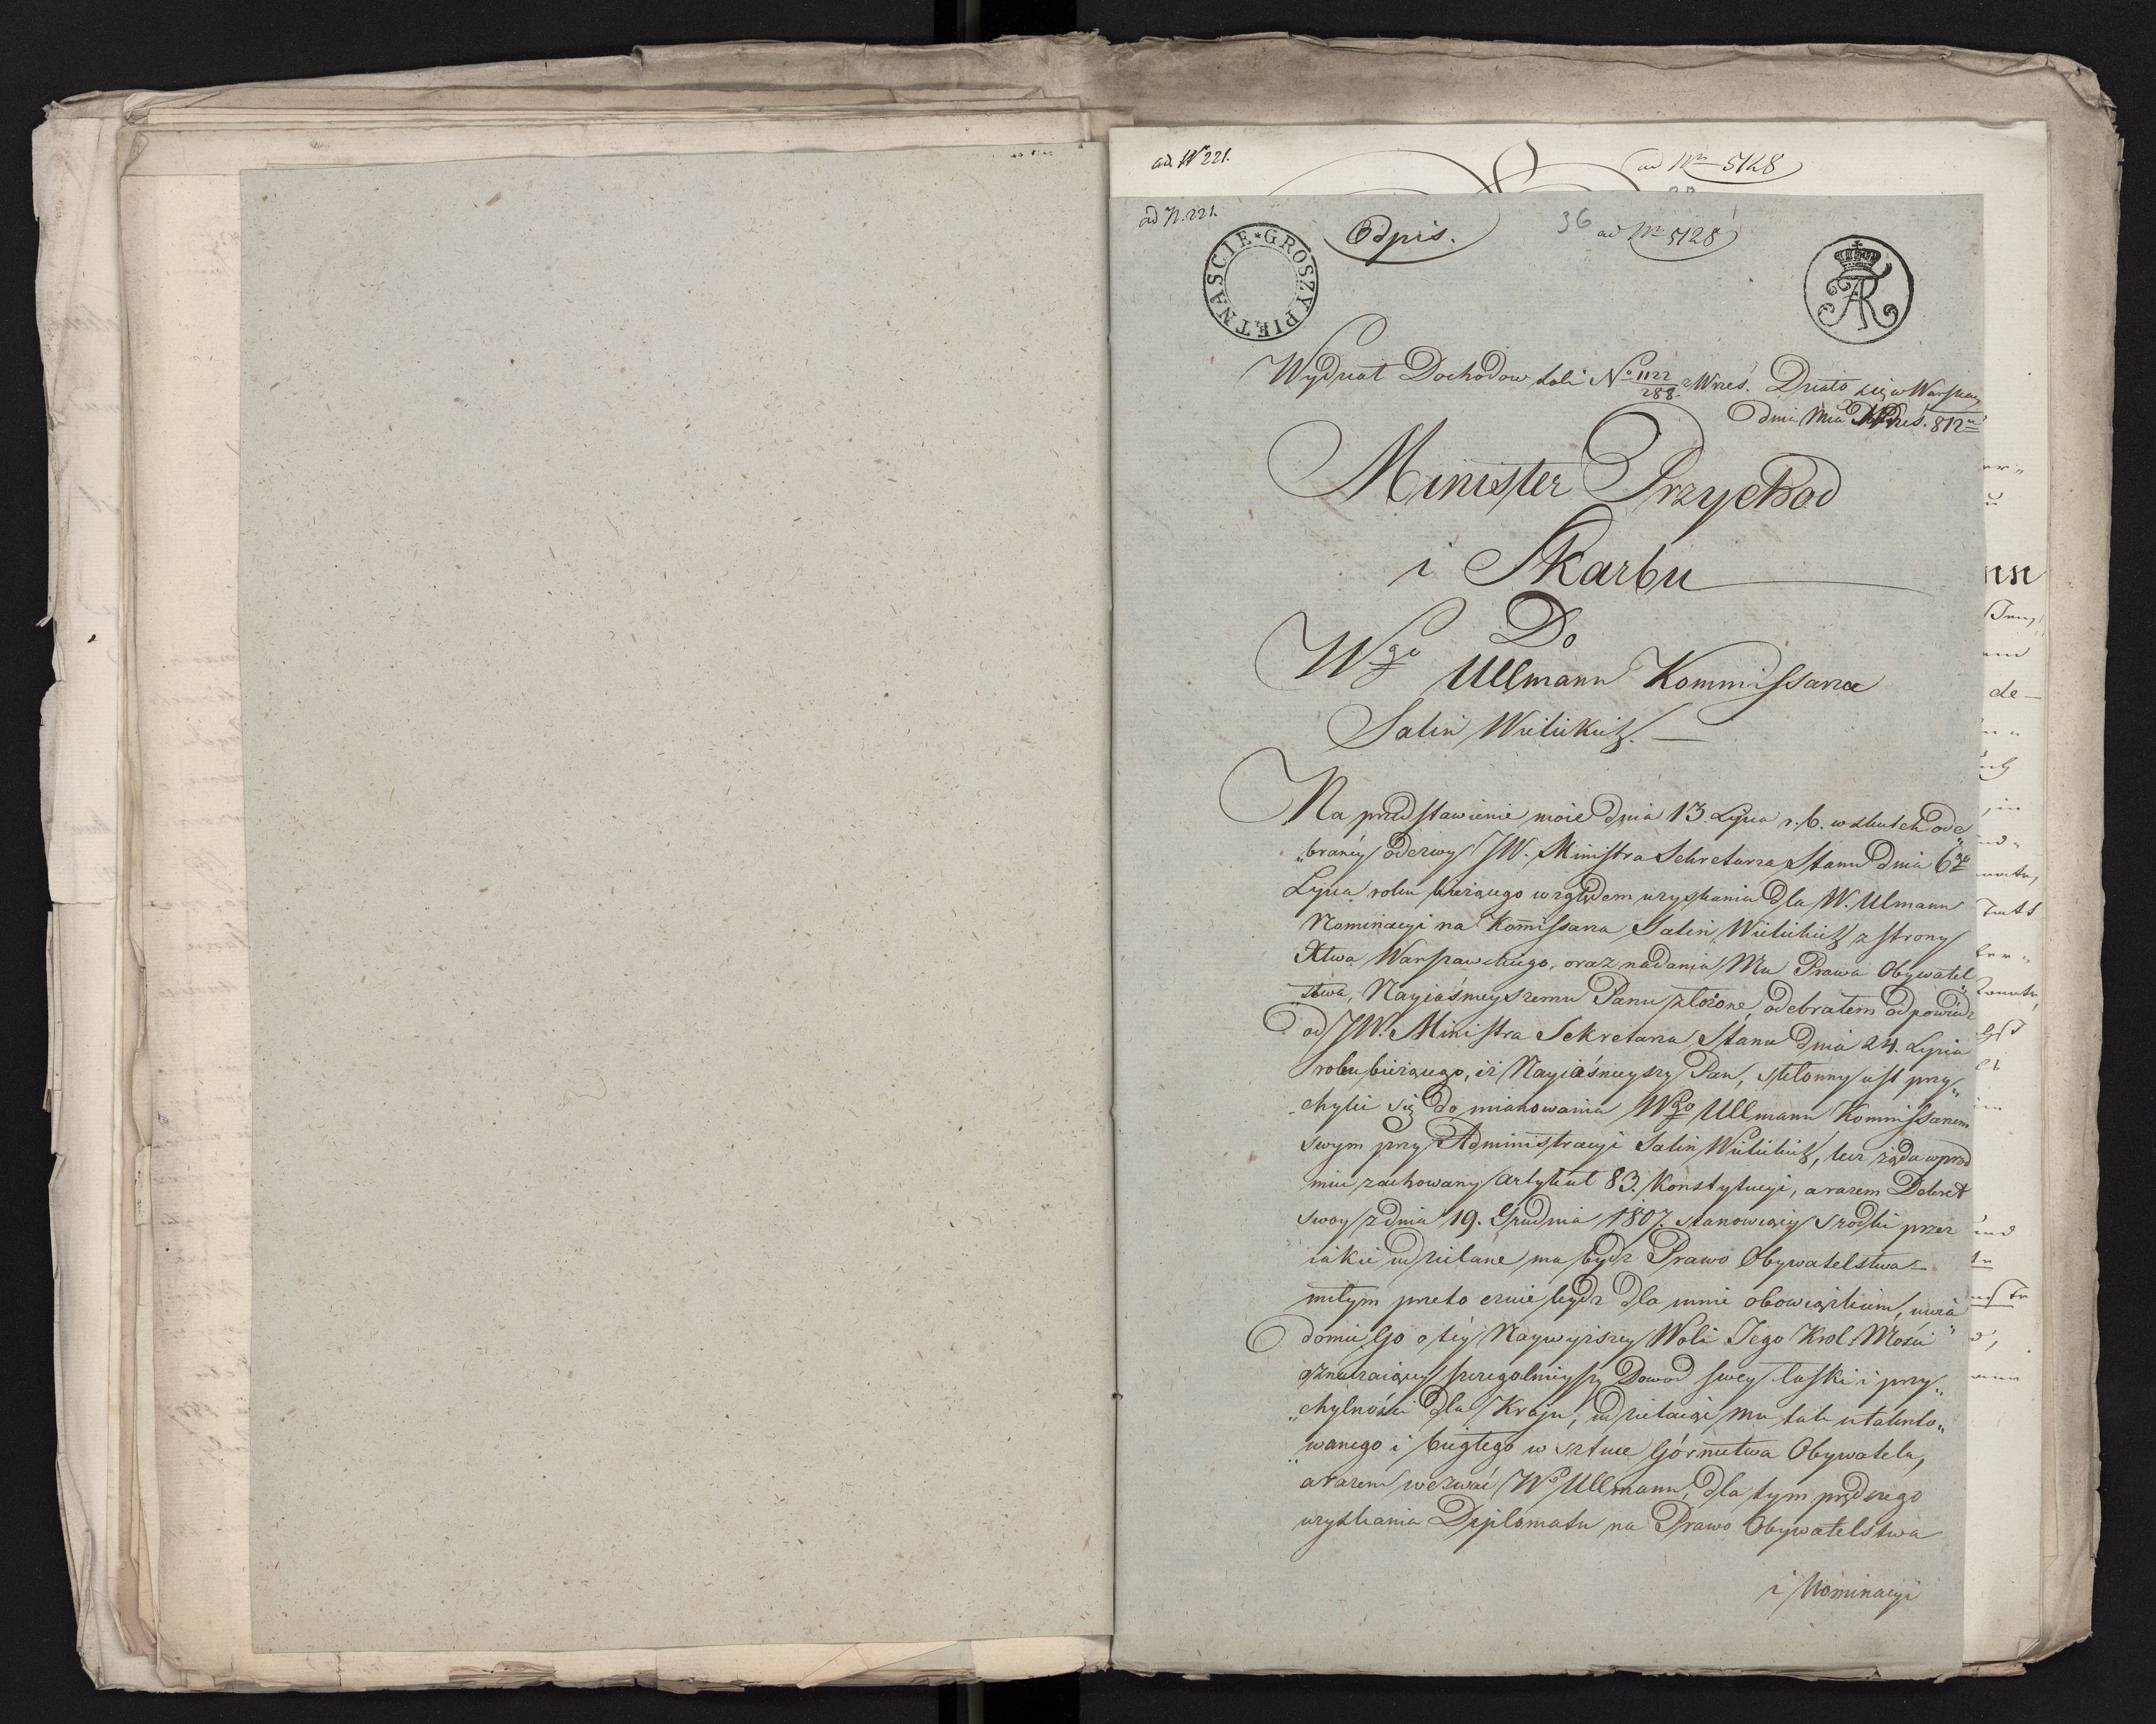 ad. Nr 221.
ad Nr 5128
ad N. 221.
Odpis.
36 ad Nr 5128
PIĘTNASCIE * GROSZY
AR
Wydział Dochodow Soli No 1122/288 Wrześ. Działo się w Warszawie
dnia Wrześ. 812
Minister Przychod
i Skarbu
Do
Wgo Ullmann Kommissarza
Salin Wielickich. —
Na przedstawienie moie dnia 13. Lipca r. b. wskutek ode„
„braney odezwy JW. Ministra Sekretarza Stanu dnia 6go
Lipca roku bieżącego względem uzyskania dla W. Ulmann
Nominacyi na Kommissarza Salin Wielickich z strony
Xtwa Warszawskiego, oraz nadania Mu Prawa Obywatel„
stwa, Nayiaśnieyszemu Panu złożone, odebrałem odpowiedz
od JW. Ministra Sekretarza Stanu dnia 24. Lipca
roku bieżącego, iż Nayiaśnieyszy Pan, skłonny iest przy„
„chylić się do mianowania Wgo Ullmann Kommissarzem
swym przy Administracyi Salin Wielickich, lecz żąda wprzód
mieć zachowany artykuł 83. Konstytucyi, a razem Dekret
swoy z dnia 19. Grudnia 1807. stanowiący srodki przez
iakie udzielane ma bydz Prawo Obywatelstwa —
miłym przeto czuię bydz dla mnie obowiązkiem, uwia„
domić Go o tey Naywyższey Woli Jego Krol. Mości
oznaczaiącey szczegolnieyszy Dowod swey łaski i przy„
„chylności dla Kraju, udzielaiąc mu tak utalento„
„wanego i biegłego w sztuce Górnictwa Obywatela,
a razem wezwać Wo Ullmann, dla tym prędszego
uzyskania Diplomatu na Prawo Obywatelstwa
i Nominacyi